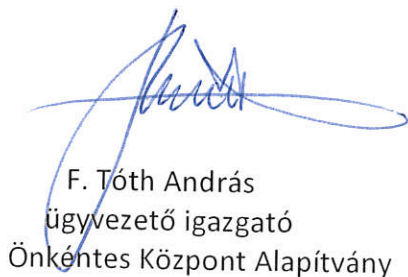 F. Tóth András
ügyvezető igazgató
Önkéntes Központ Alapítvány